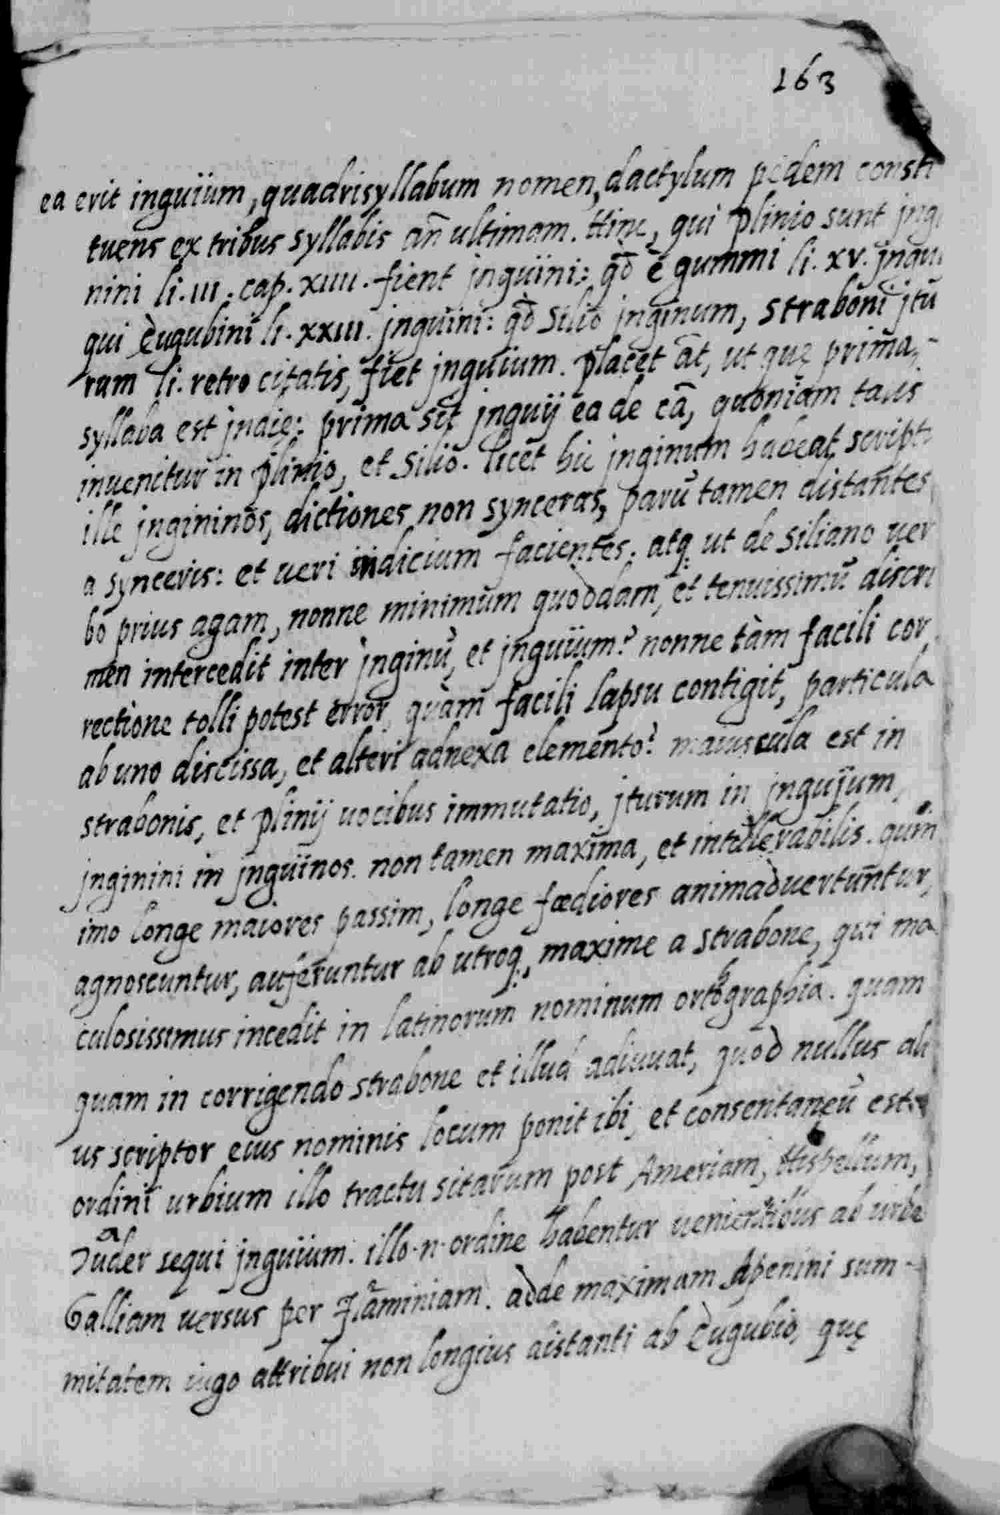 163
ea erit inguium, quadrisyllabum nomen, dactylum pedem consti
tuens ex tribus syllabis añ ultimam. Hinc, qui plinio sunt jngi
nini li. III. cap. XIIII. fient jnguini: qđ è gummi li. XV. jngui
qui Eugubini li. XXIII. jnguini: qđ Silio jnginum, straboni jtu
rum li. retro citatis, fiet jnguium. placet at, ut quę prima,
syllaba est jndie; prima sit jnguij ea de cã, quoniam talis
inuenitur in plinio, et Silio. licet hic jnginum habeat, scripti
ille jngininos, dictiones non synceras, parũ tamen distantes
a synceris: et ueri indicium facientes. atq; ut de Siliano uer
bo prius agam, nonne minimum quoddam, et tenuissimũ discri
men intercedit inter jnginũ, et jnguium? nonne tàm facili cor
rectione tolli potest error, quàm facili lapsu contigit, particula
ab uno discissa, et alteri adnexa elemento? maiuscula est in
strabonis, et plinij uocibus immutatio, jturum in jnguijum,
jnginini in jnguinos. non tamen maxima, et intolerabilis. quin
imo longe maiores passim, longe fœdiores animaduertuntur,
agnoscuntur, auferuntur ab utroq;, maxime a strabone, qui ma
culosissimus incedit in latinorum nominum ortographia. quam
quam in corrigendo strabone et illud adiuuat, quod nullus ali
us scriptor eius nominis locum ponit ibi, et consentaneũ est
ordini urbium illo tractu sitarum post Ameriam, Hispellum,
Tuder sequi jnguium. illo .n. ordine habentur uenientibus ab urbe
Galliam uersus per Flaminiam. adde maximam Apenini sum-
mitatem iugo attribui non longius distanti ab Eugubio, quę